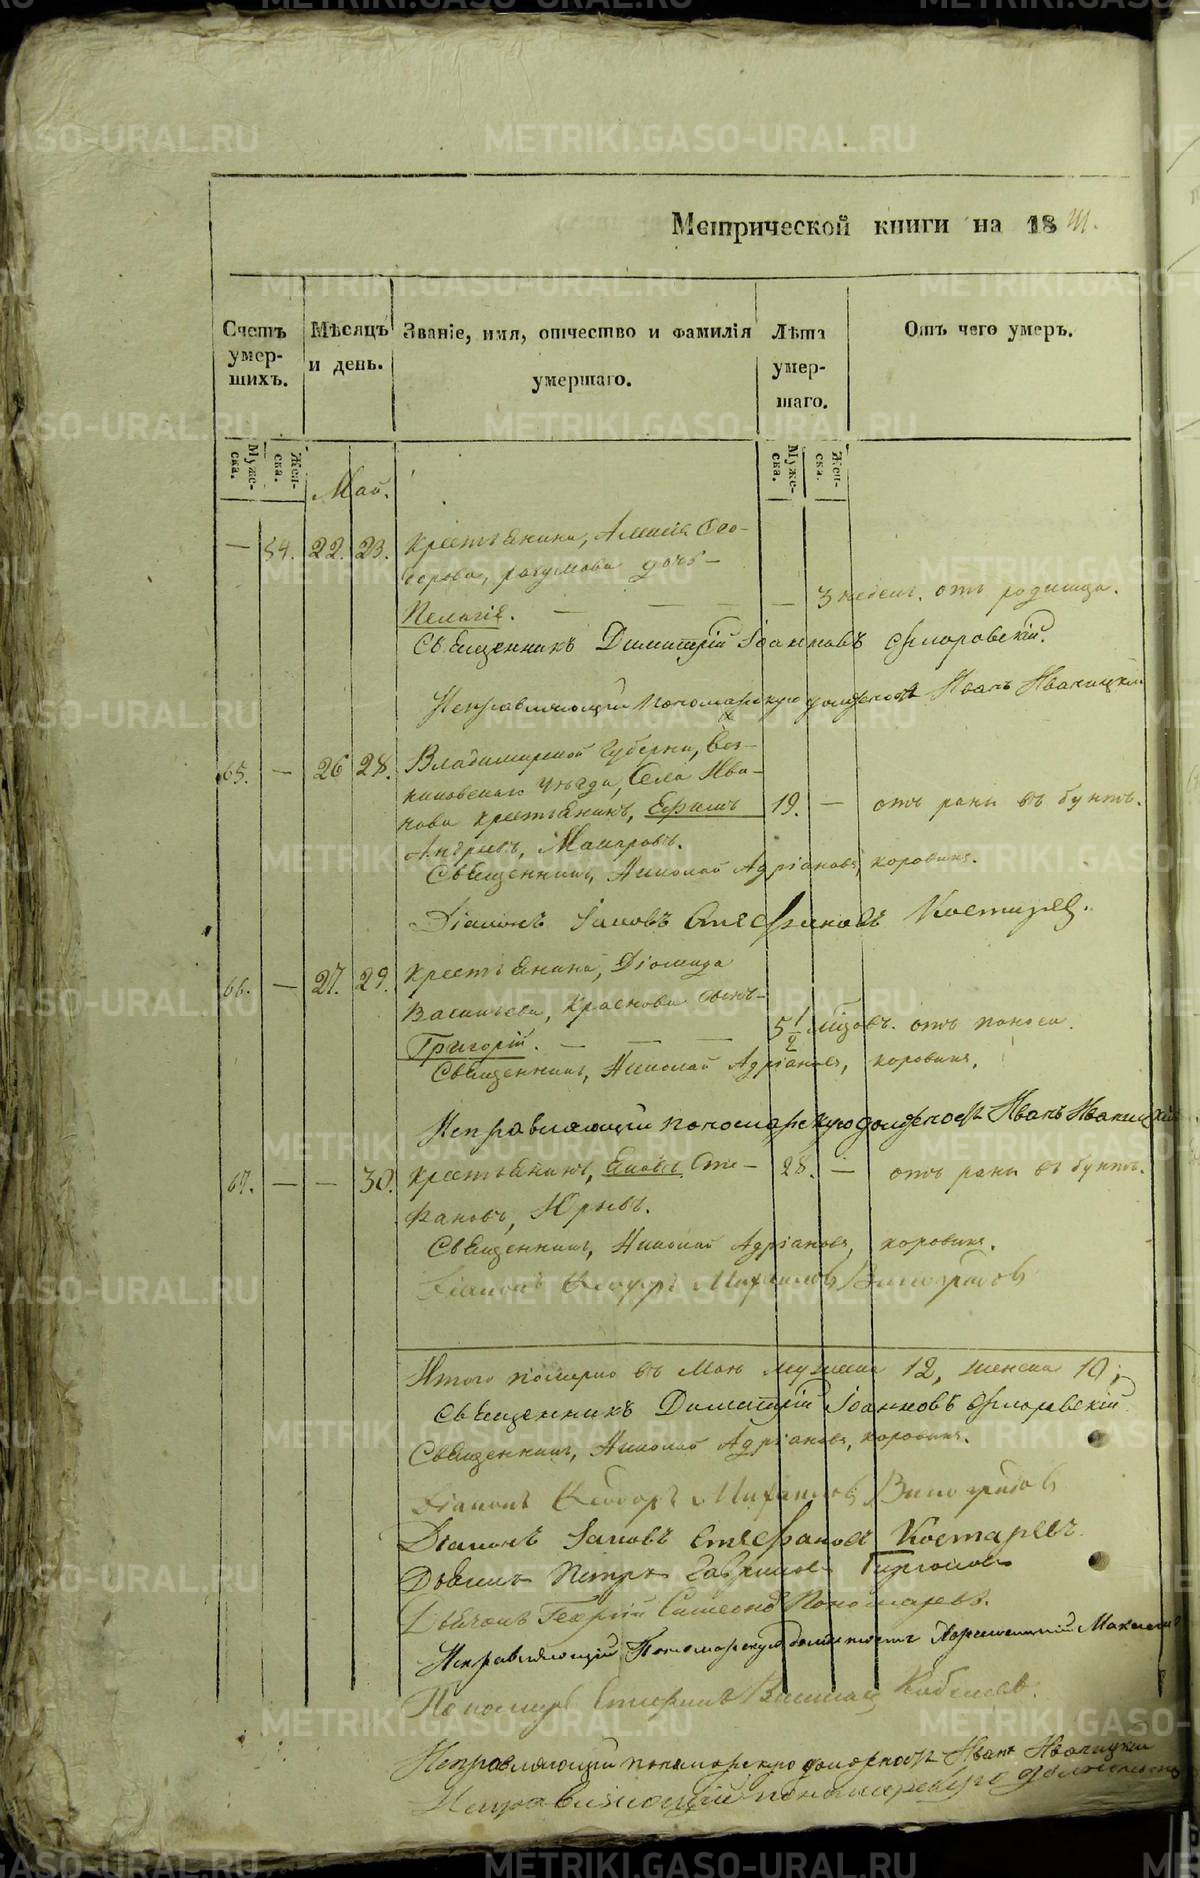 Метрической книги на 1841.
Счетъ умершихъ.
Мѣсяцъ и день.
Званіе, имя, отчество и фамилія умершаго.
Лѣта умершаго.
Отъ чего умеръ.
Мужеска.
Женска.
Мужеска.
Женска.
Май.
— 54. 22. 23. Крестьянина, Алексія Ѳео-
дорова, разумова дочь —
Пелагія. — — — — 3 недел. отъ родимца.
Священникъ Димитрій Іоанновъ Флоровскій.
Исправляющій пономарскую должность Иванъ Иваницкій
65. — 26 28. Владимирской Губерніи, Вяз-
никовскаго уѣзда, Села Ива-
нова крестьянинъ, Ефимъ 19. — отъ раны въ бунтъ.
Макаровъ.
Священникъ, Николай Адріановъ, коровинъ.
Діаконъ Іаковъ Стефановъ Костаревъ.
66. — 27. 29. Крестьянина, Діомида
Васильева, Краснова сынъ —
Григорій. — — — 5 1/2 мѣсяцовъ. отъ поноса.
Священникъ, Николай Адріановъ, коровинъ.
Исправляющій пономарскую должность Иванъ Иваницкій
67. — — 30. Крестьянинъ, Сте- 28. — отъ раны въ бунтъ.
фановъ, Юрьевъ.
Священникъ, Николай Адріановъ, коровинъ.
Діаконъ Ѳеодоръ Михайловъ Виноградовъ
Итого померло въ Маѣ мужеска 12, женска 10;
Священникъ Димитрій Іоанновъ Флоровскій
Священникъ, Николай Адріановъ, коровинъ.
Діаконъ Ѳеодоръ Михайловъ Виноградовъ
Діаконъ Іаковъ Стефановъ Костаревъ.
Дьячекъ Петръ Гавриловъ
Дьячокъ Георгій Симеоновъ Пономаревъ.
Исправляющій Пономарскую должность
Пономарь Стефанъ Васильевъ
Исправляющій пономарскую должность Иванъ Иваницкій
Исправляющій пономарскую должность
METRIKI.GASO-URAL.RU